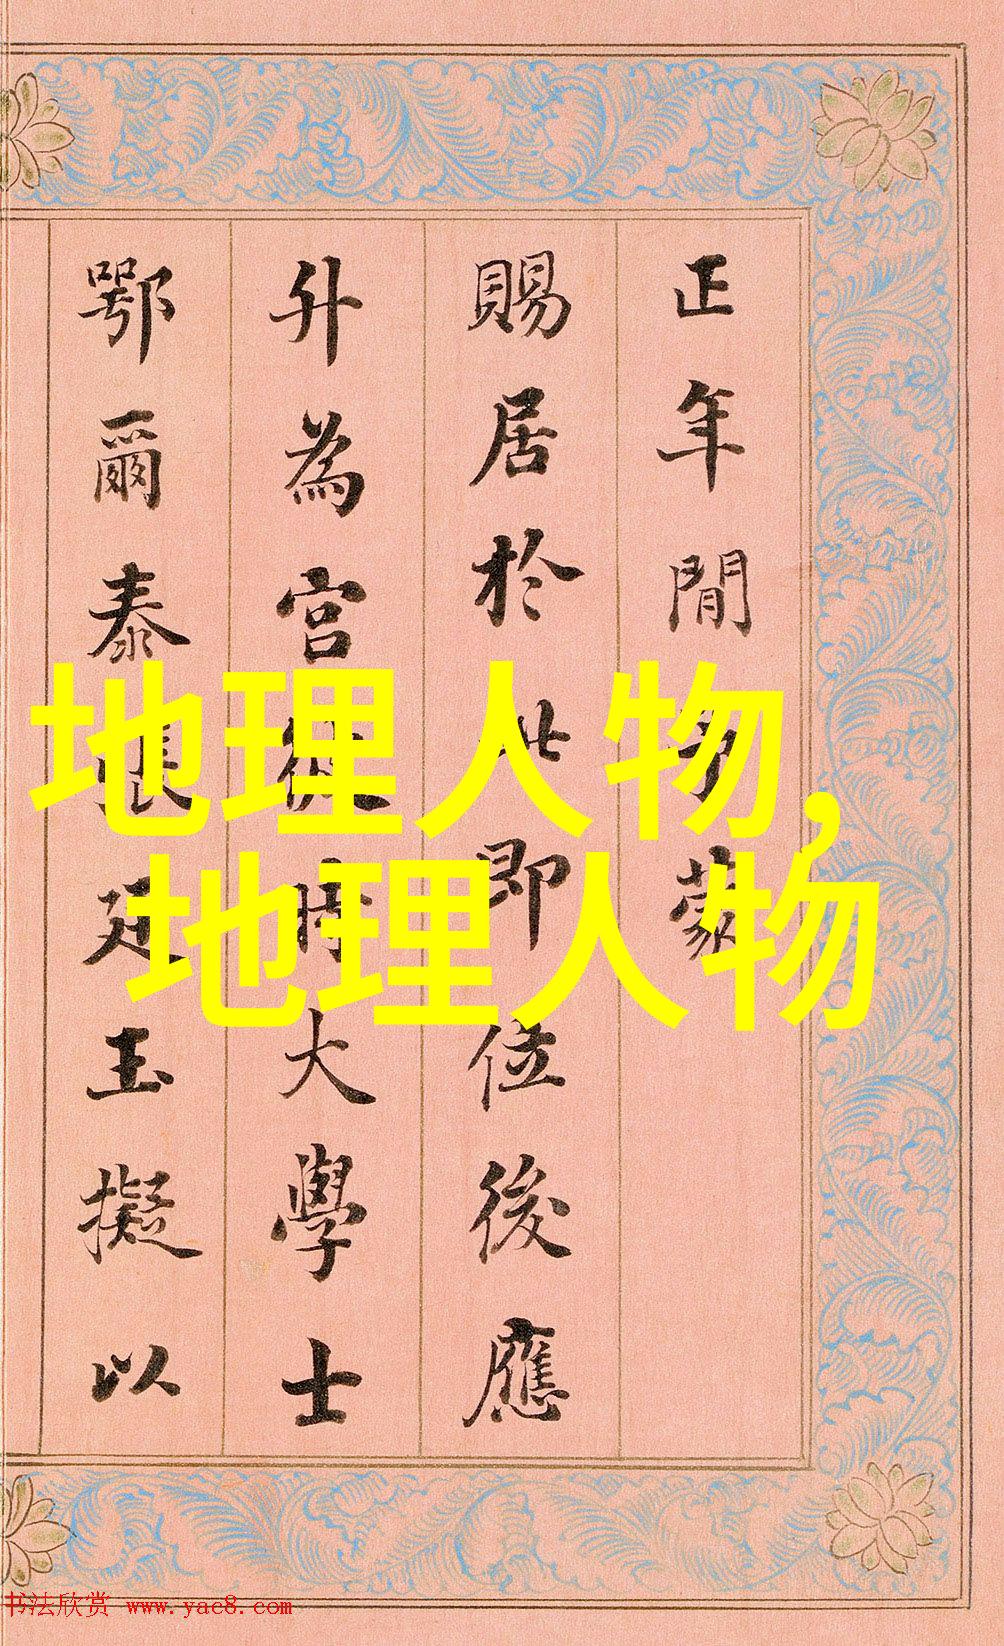 正年間多蒙
賜居於此即位後應
升為宮時大學士
鄂爾泰張廷玉擬以
地理人物,
地理人物
书法欣赏 www.yac8.com